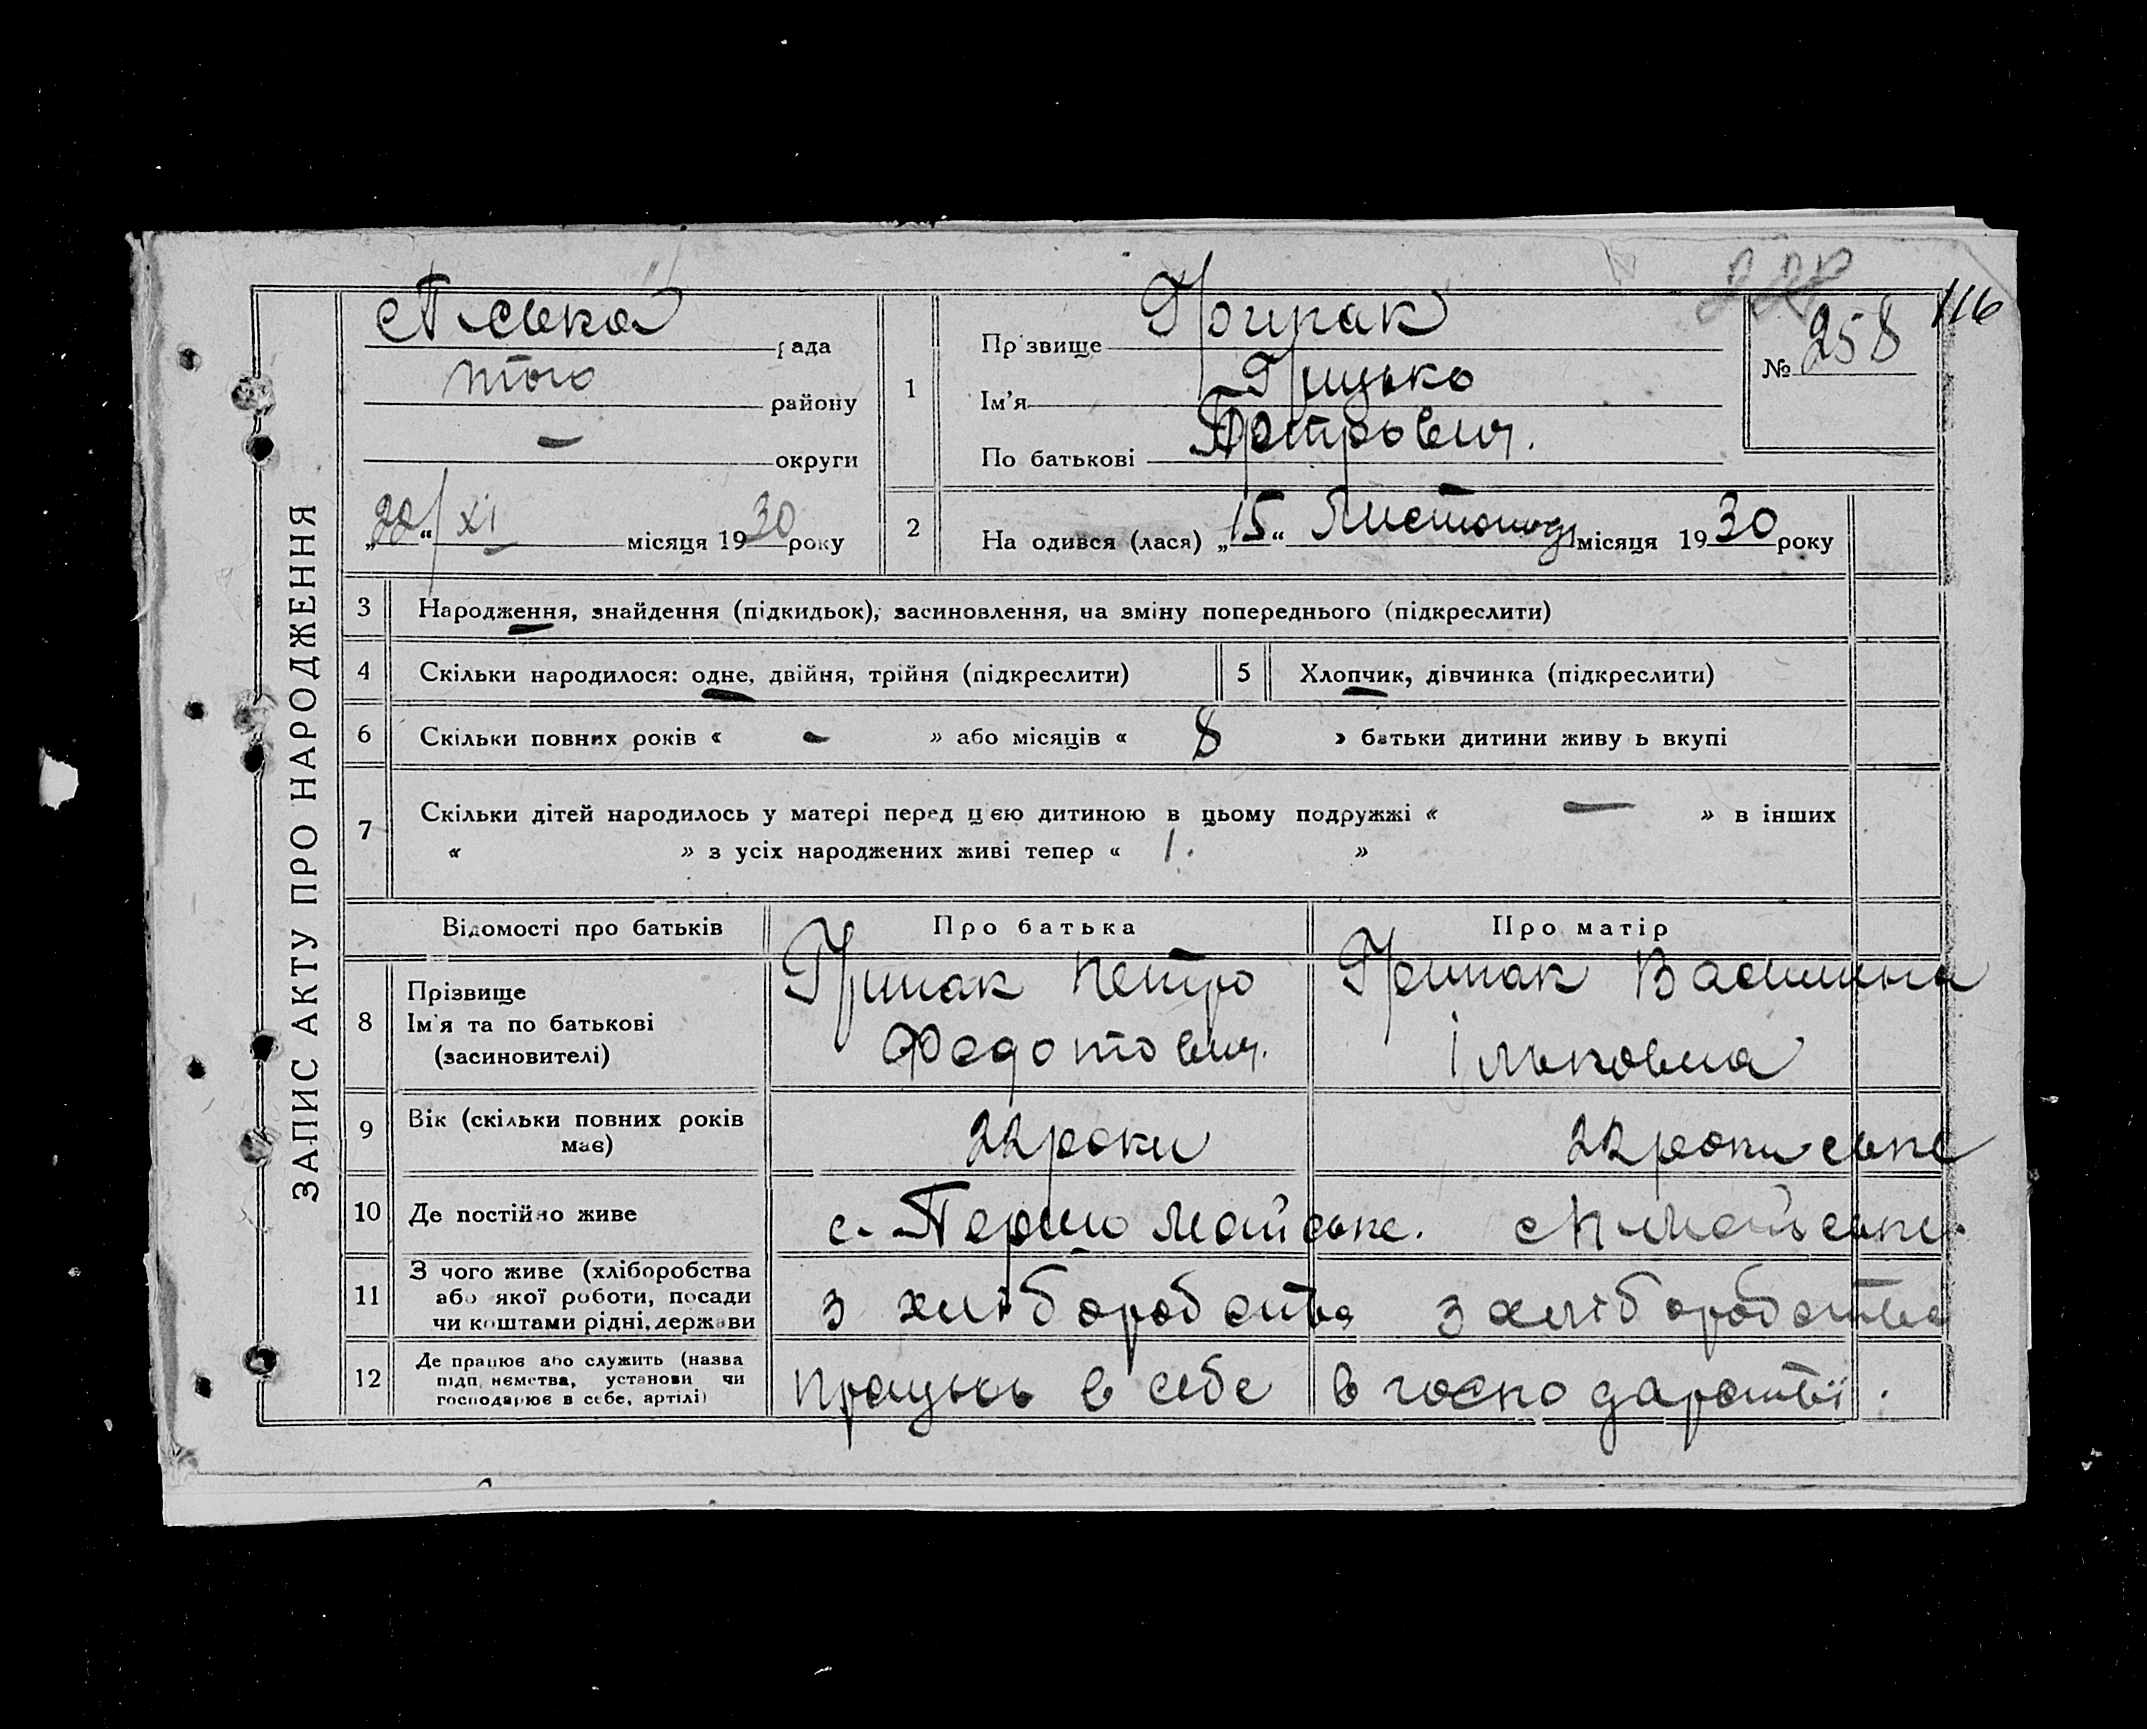 116
258
№
ЗАПИС АКТУ ПРО НАРОДЖЕННЯ
рада
того
району
—
округи
„22“ XI місяця 1930 року
1
Прізвище
Ім'я Грицько
По батькові Петрович.
2 На одився (лася) „15“ Листопад місяця 1930 року
3 Народження, знайдення (підкидьок), засиновлення, на зміну попереднього (підкреслити)
4 Скільки народилося: одне, двійня, трійня (підкреслити) 5 Хлопчик, дівчинка (підкреслити)
6 Скільки повних років « - » або місяців « 8 » батьки дитини живу ь вкупі
7 Скільки дітей народилось у матері перед цією дитиною в цьому подружжі « — » в інших
« » з усіх народжених живі тепер « 1. »
Відомості про батьків Про батька Про матір
8 Прізвище
Ім'я та по батькові
(засиновителі)
Грипак Петро
Федотович.
Грипак Василина
Ільковна
9 Вік (скільки повних років
має)
22 роки 22 роки
10 Де постійно живе с. Першо майське. с П майське.
11 З чого живе (хліборобства
або якої роботи, посади
чи коштами рідні, держави
з хліборобства з хліборобства
12 Де працює або служить (назва
підп, нємства, установи чи
господарює в себе, артілі)
працює в себе в господарстві.